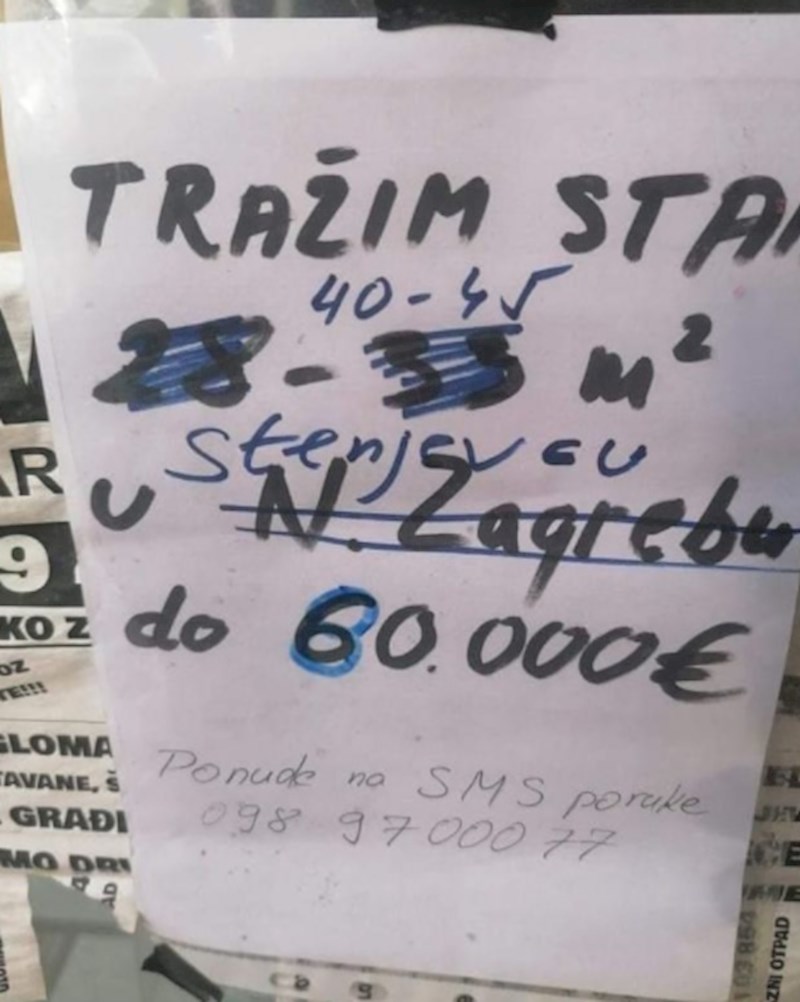 TRAŽIM STAN
40-45
28 - 35 m²
Stenjevcu
u N. Zagrebu
do 60.000€
Ponude na SMS poruke
098 9700077
AR
9
KO Z
OZ
TE!!!
GLOMA
TAVANE, Š
GRAĐI
MO DRV
ZNI OTPAD